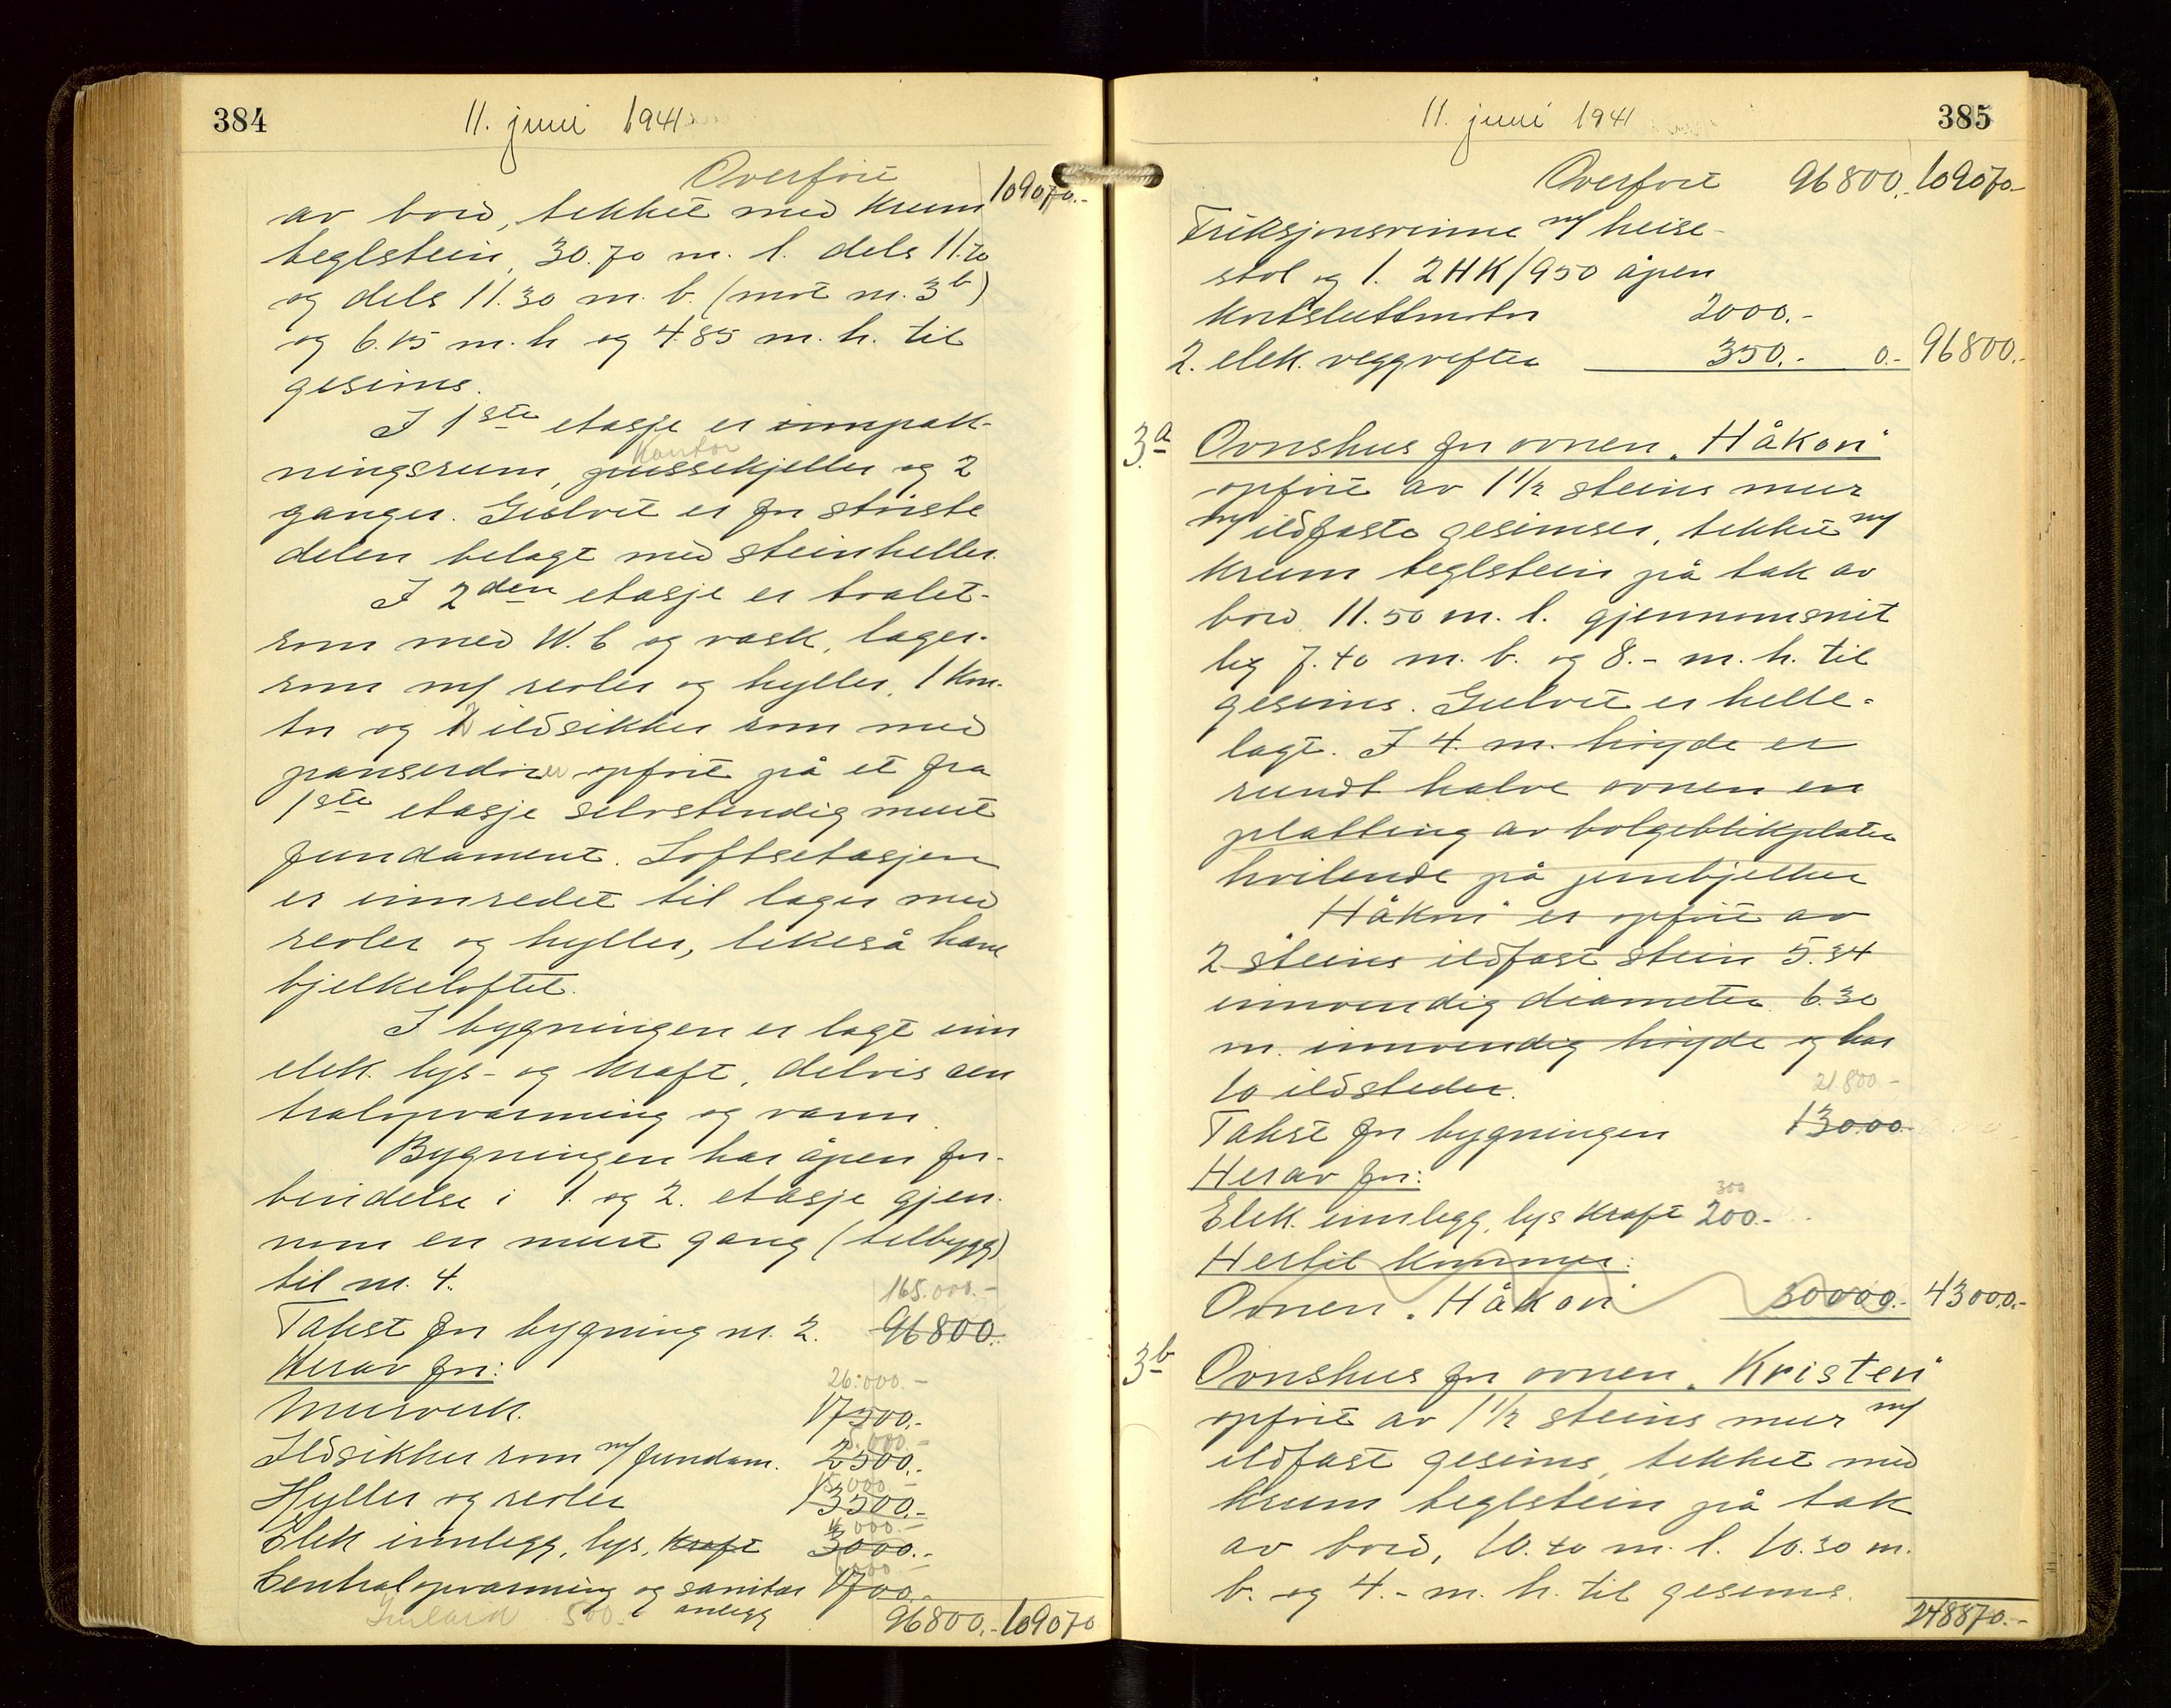 384
11. juni 1941
Overført 109070.-
av bord, tekket med krum
teglstein, 30.70 m. l. dels 11.70
og dels 11.30 m. b. (mot nr. 3b)
og 6.15 m. h og 4.85 m. h. til
gesims.
I 1ste etasje er innpak-
kontor
ningsrum, pussekjeller og 2
ganger. Gulvet er for största
delen belagt med steinheller.
I 2den etasje er toalet-
rom med W.C og vask, lager-
rom m/ reoler og hyller, 1 kon-
tor og 2 ildsikker rom med
panserdører opført på et fra
1ste etasje selvstendig murt
fundament. Loftsetasjen
er innredet til lager med
reoler og hyller, likeså hane
bjelkeloftet.
I bygningen er lagt inn
elek. lys- og kraft, delvis cen
tralopvarming og vann.
Bygningen har åpen for-
bindelse i 1. og 2. etasje gjen-
nom en murt gang (tilbygg)
til nr. 4.
165.000.-
Takst for bygning nr. 2. 96800.-
Herav for:
26.000.-
Murverk. 17500.-
5.000.-
Ildsikker rom m/ fundam. 2500.-
15.000.-
Hyller og reoler 13500.-
4.000.-
Elek innlegg, lys, kraft 3000.-
6000
Centralopvarming og sanitær 1700.-
anlegg
500.-
96800.- 109070
11. juni 1941
385
Overført 96800.- 109070.-
Friksjonsvinne m/ heise-
stol og 1. 2HK/950 åpen
kortsluttmotor 2000.-
2. elek. veggvifter 350.- 0.- 96800.-
3.a Ovnshus for ovnen "Håkon"
opført av 1 1/2 steins mur
m/ ildfaste gesimser, tekket m/
krum teglstein på tak av
bord 11.50 m. l. gjennomsnit
lig 7.40 m. b. og 8.- m. h. til
gesims. Gulvet er helle-
lagt. I 4. m. høyde er
rundt halve ovnen en
platting av bølgeblikplater
hvilende på jernbjelker
"Håkon" er opført av
2 steins ildfast stein 5.34
innvendig diameter 6.30
m. innvendig höyde og har
10 ildsteder.
21.800.-
Takst for bygningen 13000.-
Herav for:
300
Elek. innlegg, lys kraft 200.-
Hertil kommer:
Ovnen "Håkon" 30000.- 43000.-
3b Ovnshus for ovnen "Kristen"
opført av 1 1/2 steins mur m/
ildfast gesims, tekket med
krum teglstein på tak
av bord, 10.40 m. l. 10.30 m.
b. og 4.- m. h. til gesims.
248870.-